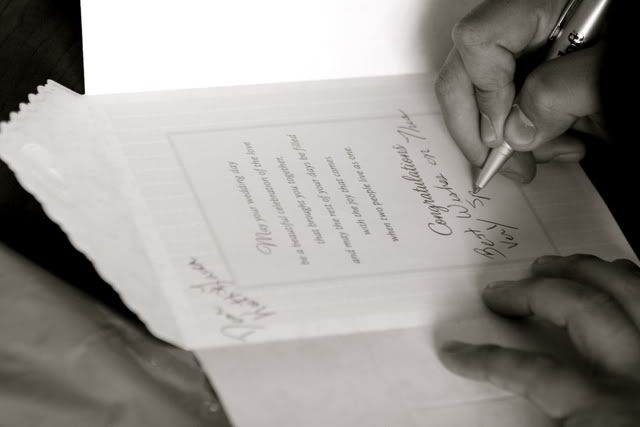 Dear
May your wedding day
be a beautiful celebration of the love
that brings you together,
and may the rest of your days be filled
with the joy that comes
when two people live as one.
Congratulations
Best Wishes on This
Very Sp